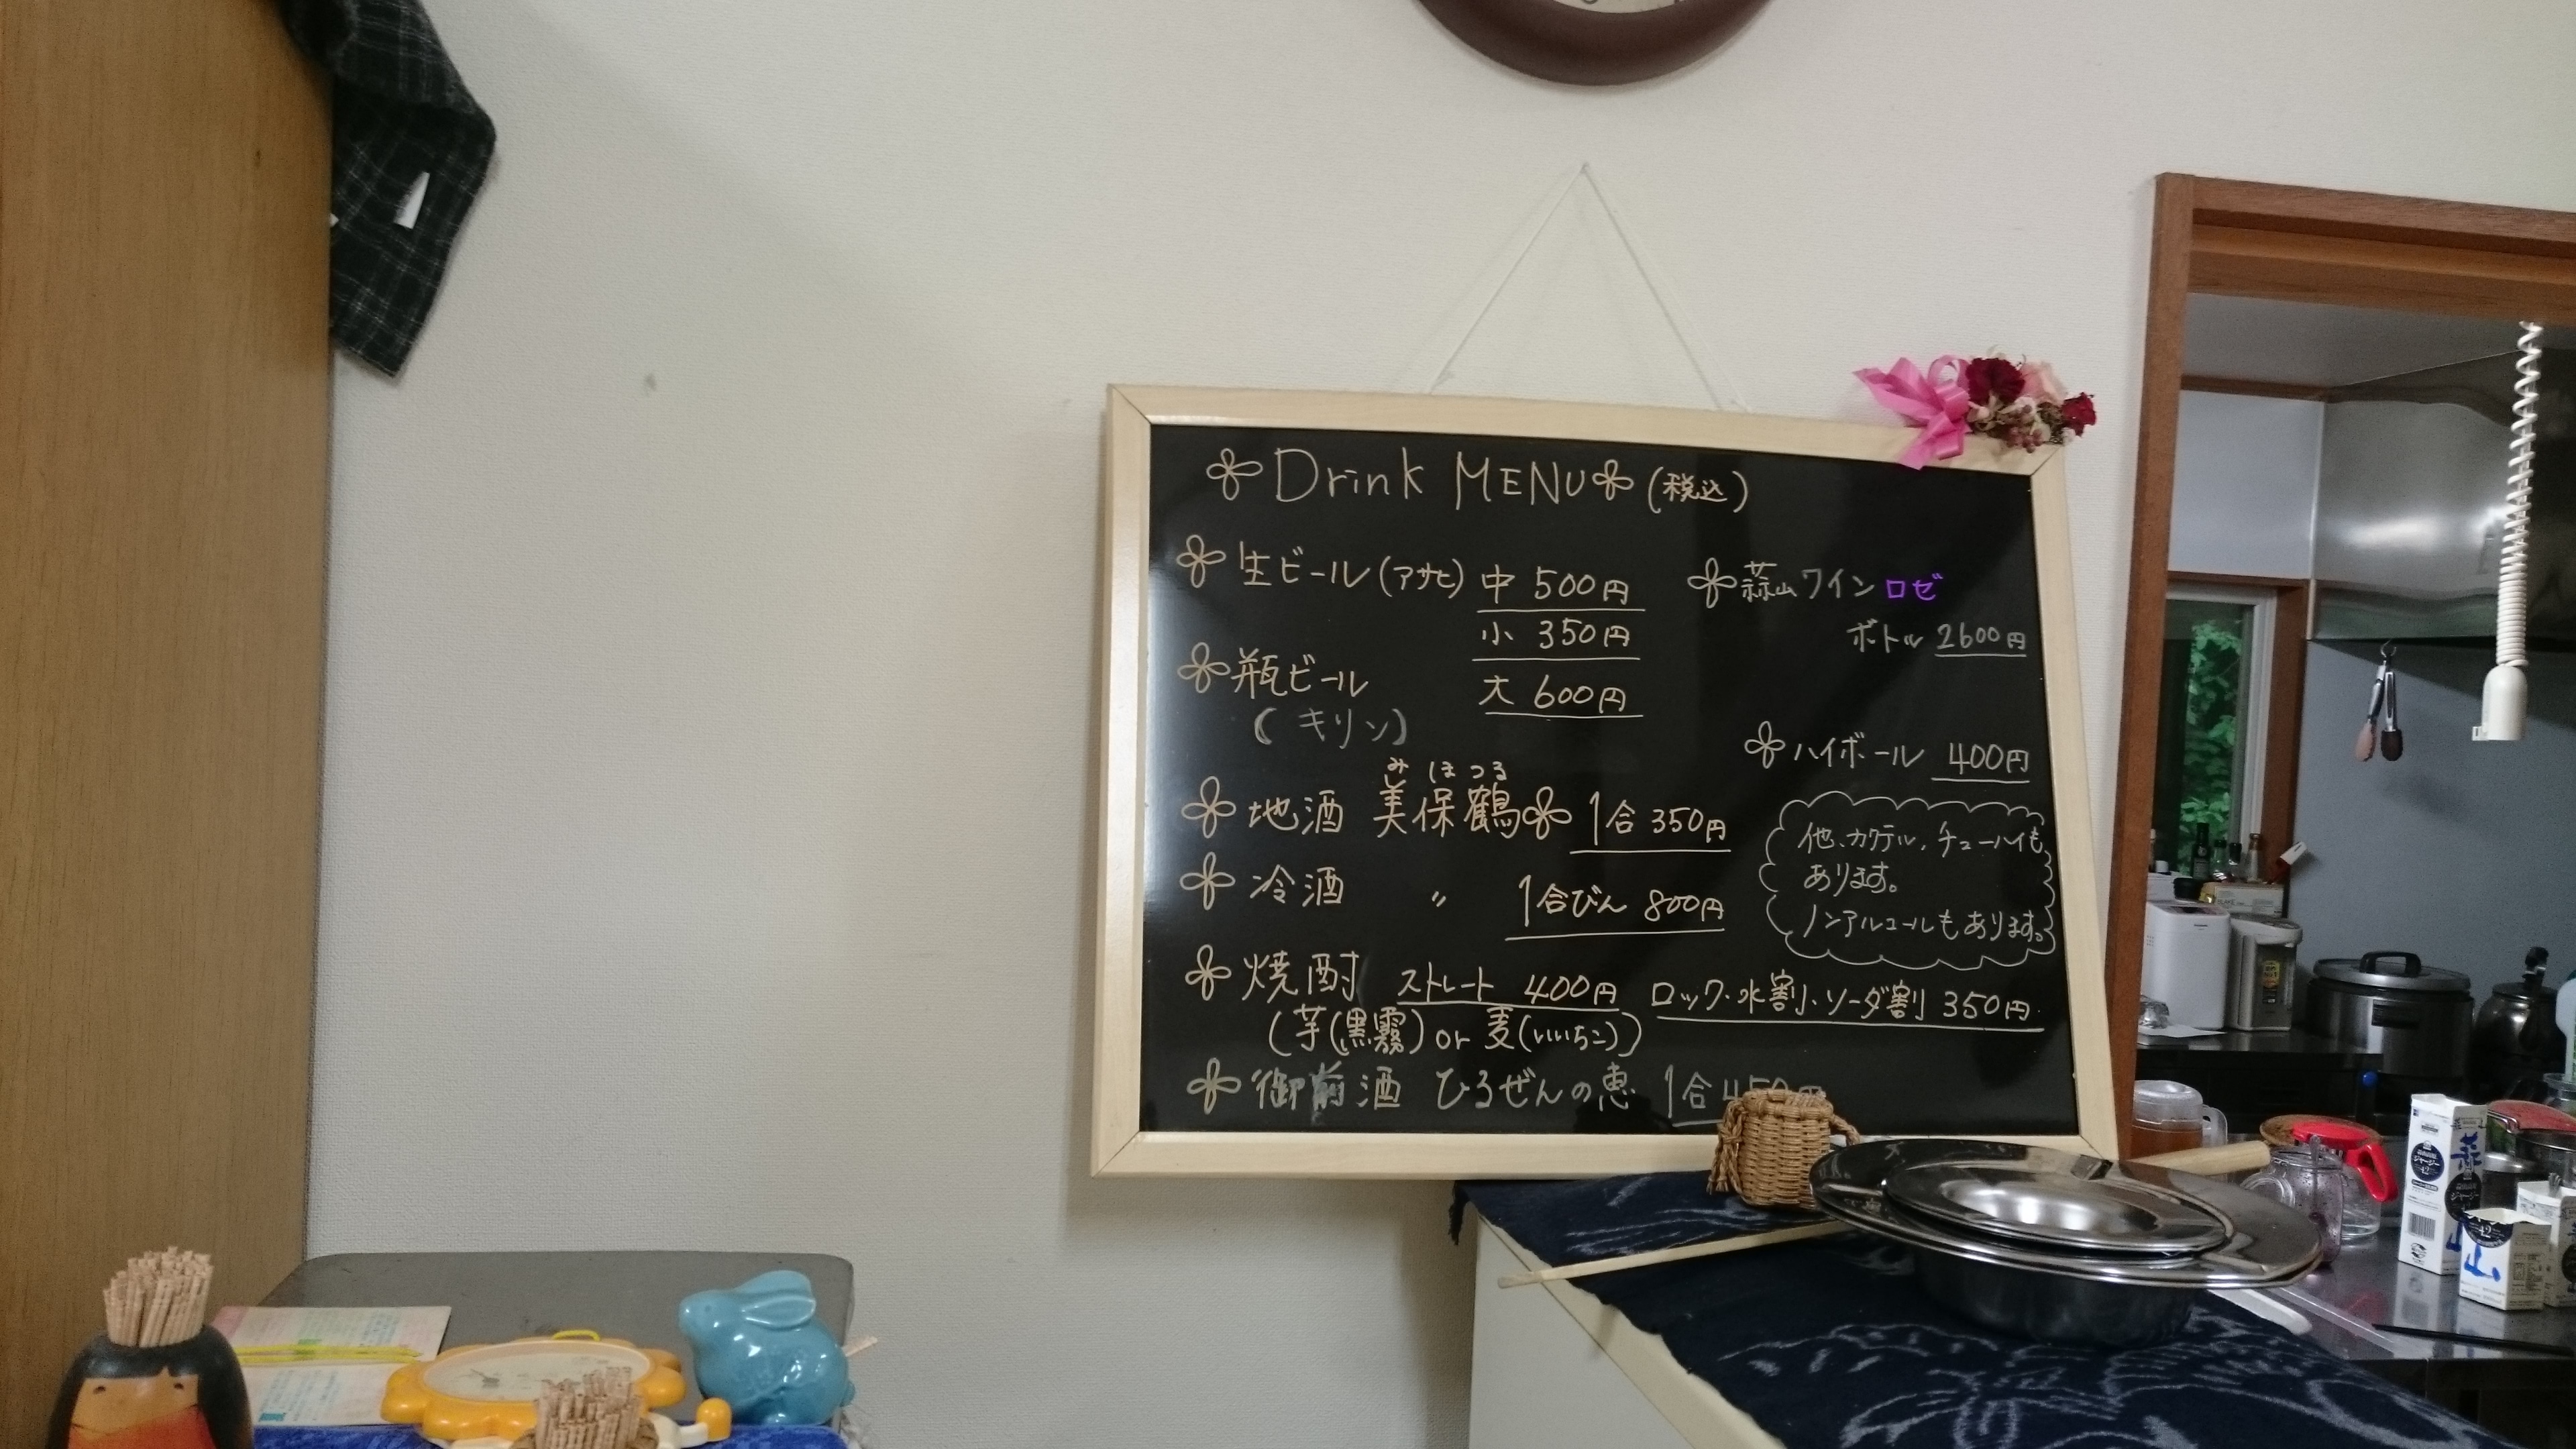 Drink MENU (税込)
生ビール(アサヒ) 中 500円
小 350円
瓶ビール 大 600円
(キリン)
みほつる
地酒 美保鶴 1合 350円
冷酒 〃 1合びん 800円
焼酎 ストレート 400円 ロック・水割・ソーダ割 350円
(芋(黒霧) or 麦(いいちこ))
御前酒 ひろぜんの恵 1合450円
蒜山ワイン ロゼ
ボトル 2600円
ハイボール 400円
他、カクテル、チューハイも
あります。
ノンアルコールもあります。
蒜
山
ジャージー
4.2